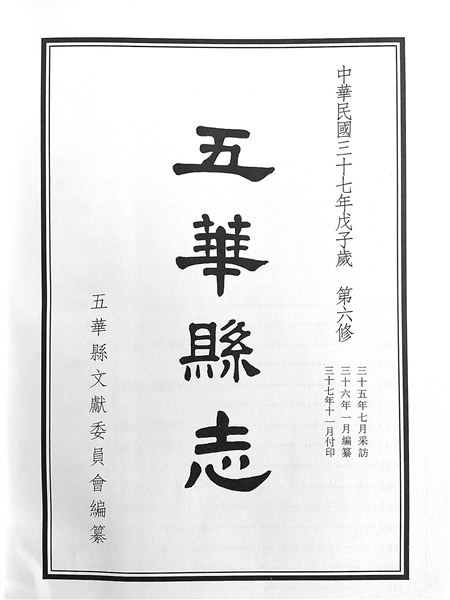 中華民國三十七年戊子歲 第六修
三十五年七月采訪
三十六年一月編纂
三十七年十一月付印
五華縣志
五華縣文獻委員會編纂